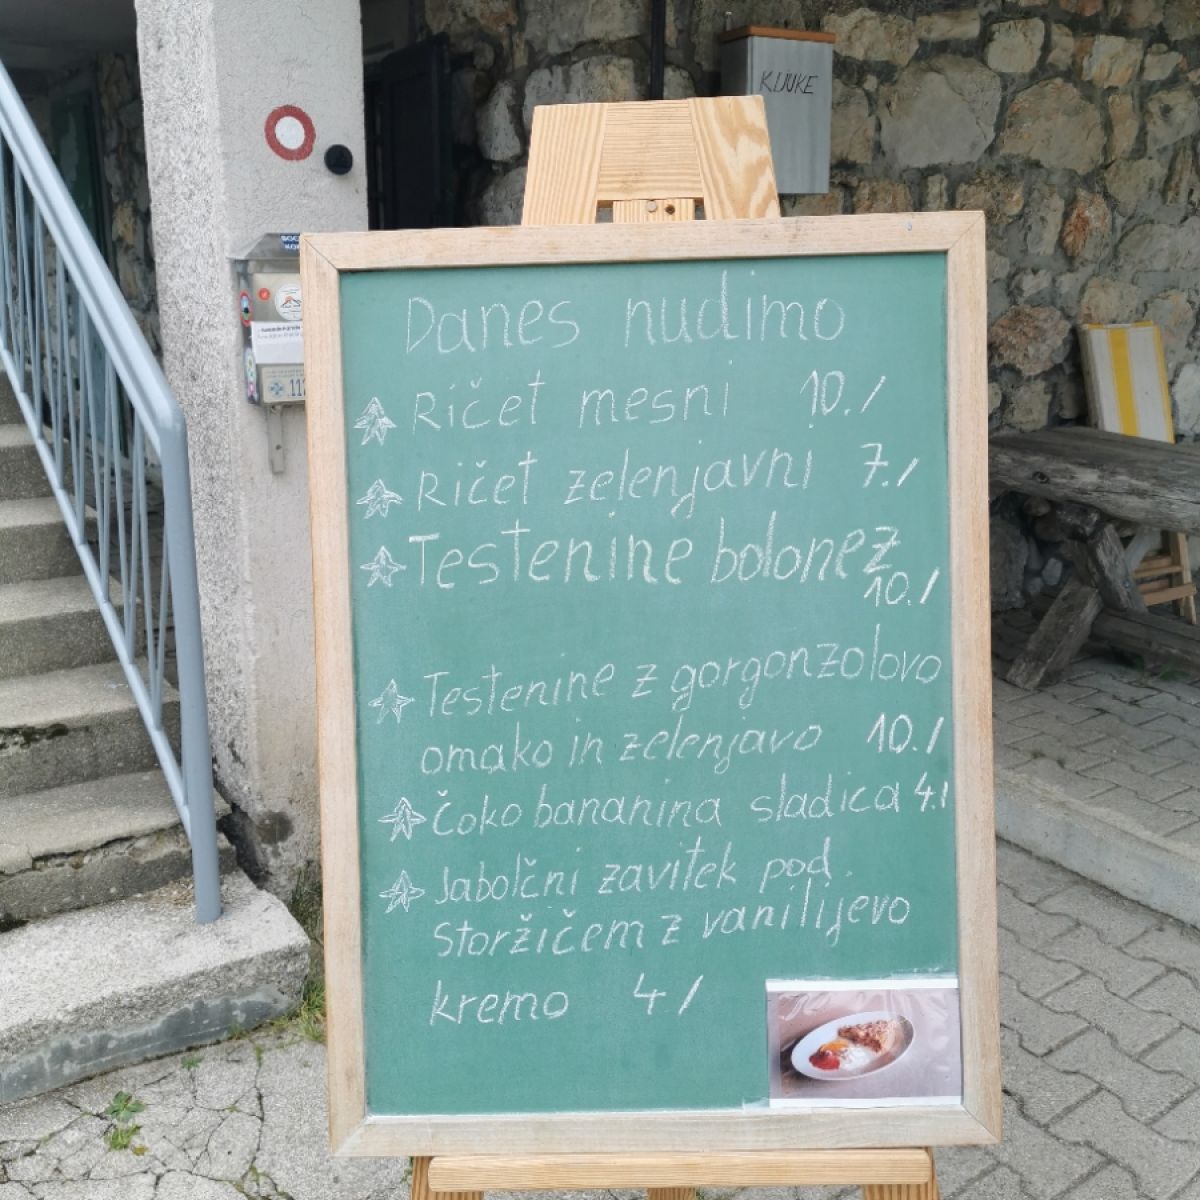 KLJUKE
Danes nudimo
Ričet mesni 10./
Ričet zelenjavni 7./
Testenine bolonez
10./
Testenine z gorgonzolovo
omako in zelenjavo 10./
Čoko bananina sladica 4./
Jabolčni zavitek pod
Storžičem z vanilijevo
kremo 4/
112